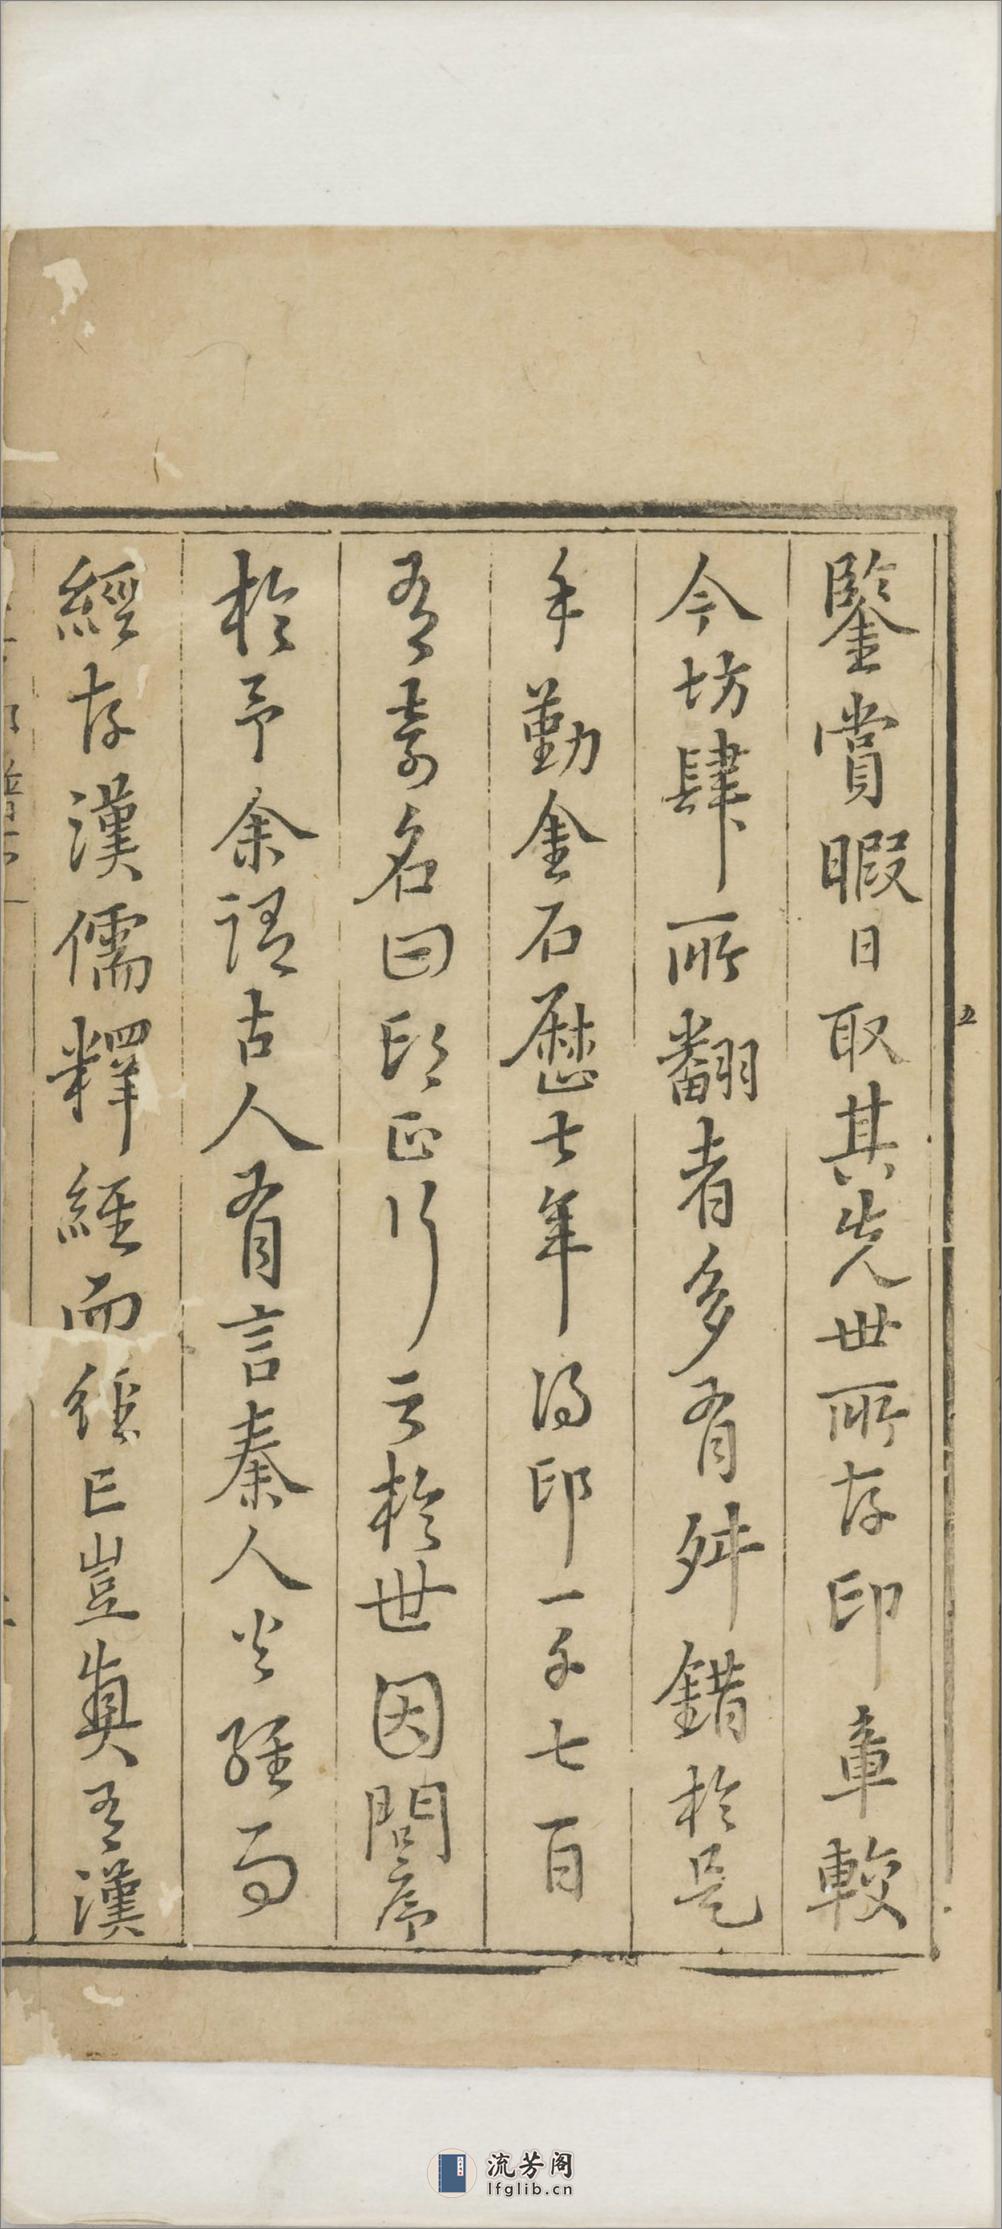 鑒賞暇日取其先世所存印章較
今坊肆所翻者多有舛錯於是
手勤金石歷七年得印一千七百
有奇名曰印正行之於世因問序
於予余謂古人有言秦人焚經而
經存漢儒釋經而經亡豈真有漢
流芳阁
lfglib.cn